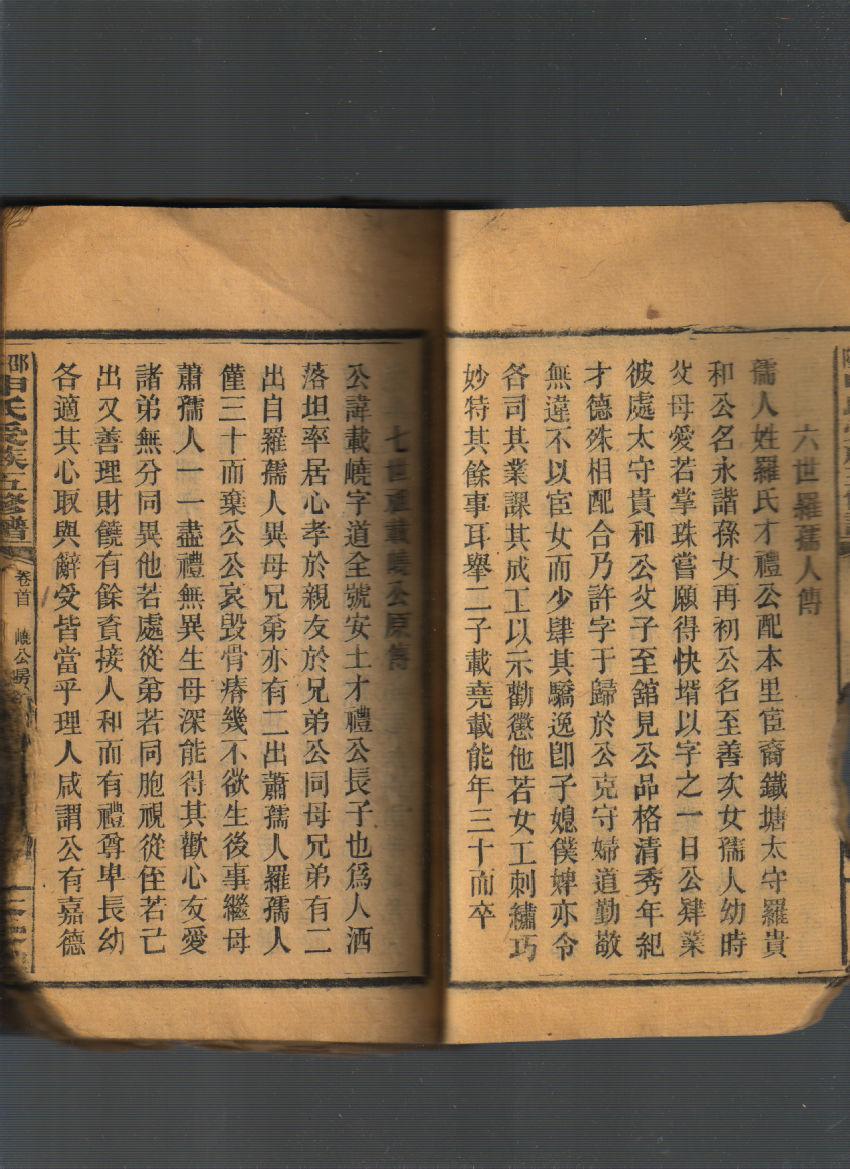 六世羅孺人傳
孺人姓羅氏才禮公配本里宦裔鐵塘太守羅貴
和公名永諧孫女再初公名至善次女孺人幼時
父母愛若掌珠嘗願得快壻以字之一日公肄業
彼處太守貴和公父子至舘見公品格清秀年紀
才德殊相配合乃許字于歸於公克守婦道勤敬
無違不以宦女而少肆其驕逸卽子媳僕婢亦令
各司其業課其成工以示勸懲他若女工刺繡巧
妙特其餘事耳舉二子載堯載能年三十而卒
七世祖載嶢公原傳
公諱載嶢字道全號安土才禮公長子也爲人洒
落坦率居心孝於親友於兄弟公同母兄弟有二
出自羅孺人異母兄弟亦有二出蕭孺人羅孺人
僅三十而棄公公哀毀骨瘠幾不欲生後事繼母
蕭孺人一一盡禮無異生母深能得其歡心友愛
諸弟無分同異他若處從弟若同胞視從侄若己
出又善理財饒有餘資接人和而有禮尊卑長幼
各適其心取與辭受皆當乎理人咸謂公有嘉德
邵申氏受族五修譜
卷首
嶢公房